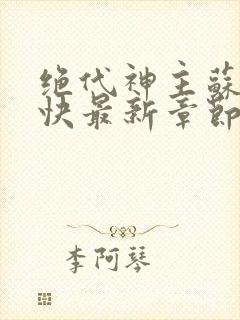 绝代神主蘇
快最新章節
李阿琴